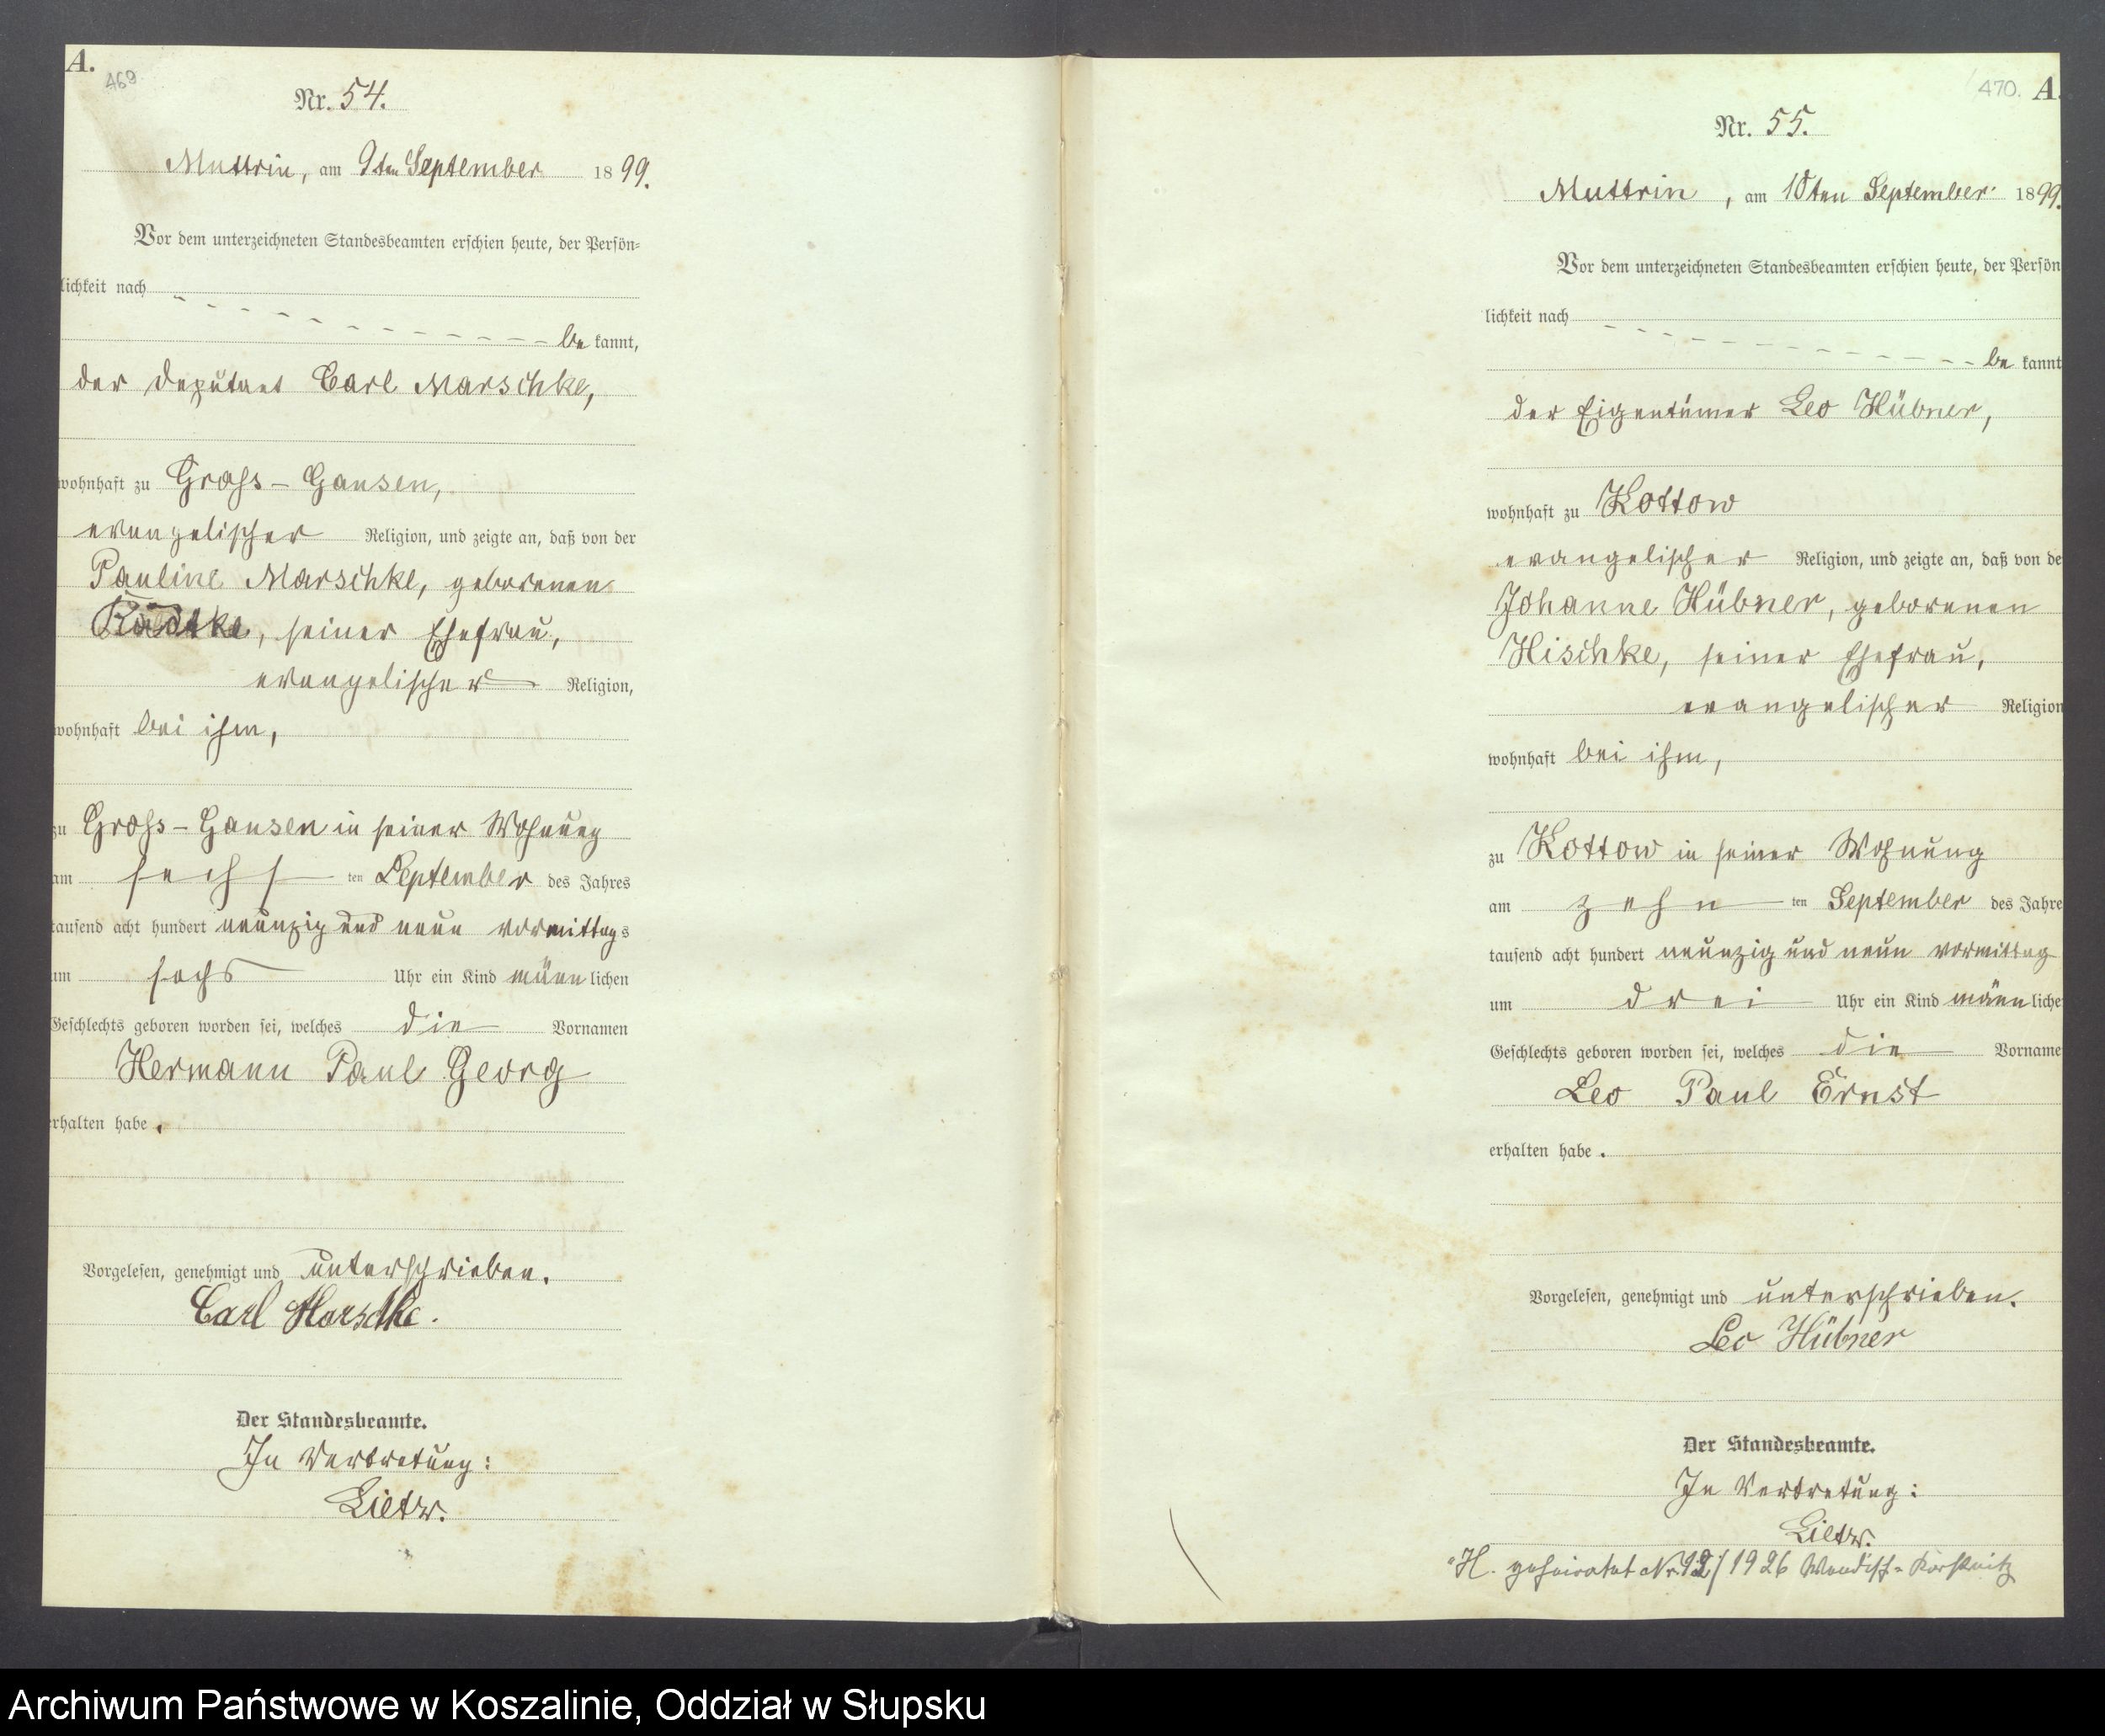 A.
469
Nr. 54.
Muttrin, am 9ten September 1899.
Vor dem unterzeichneten Standesbeamten erschien heute, der Persön=
lichkeit nach
be kannt,
der Deputant Carl Marschke,
wohnhaft zu Gross-Gansen,
evangelischer Religion, und zeigte an, daß von der
Pauline Marschke, geborenen
Radtke, seiner Ehefrau,
evangelischer Religion,
wohnhaft bei ihm,
zu Gross-Gansen in seiner Wohnung
am sechsten September des Jahres
tausend acht hundert neunzig und neun vormittags
um sechs Uhr ein Kind männlichen
Geschlechts geboren worden sei, welches die Vornamen
Hermann Paul Georg
erhalten habe.
Vorgelesen, genehmigt und unterschrieben.
Carl Marschke.
Der Standesbeamte.
In Vertretung:
Lietz.
470. A.
Nr. 55.
Muttrin, am 10ten September 1899.
Vor dem unterzeichneten Standesbeamten erschien heute, der Persön
lichkeit nach
be kannt
der Eigentümer Leo Hübner,
wohnhaft zu Kottow
evangelischer Religion, und zeigte an, daß von de
Johanne Hübner, geborenen
Hischke, seiner Ehefrau,
evangelischer Religion
wohnhaft bei ihm,
zu Kottow in seiner Wohnung
am zehnten September des Jahre
tausend acht hundert neunzig und neun vormittag
um drei Uhr ein Kind männliche
Geschlechts geboren worden sei, welches die Vorname
Leo Paul Ernst
erhalten habe.
Vorgelesen, genehmigt und unterschrieben.
Leo Hübner
Der Standesbeamte.
In Vertretung:
Lietz.
H. geheiratet Nr. 12/1926 Wendisch-Karstnitz
Archiwum Państwowe w Koszalinie, Oddział w Słupsku